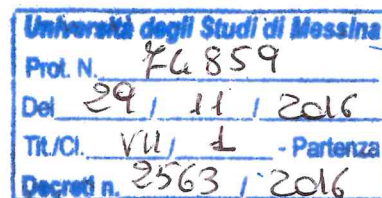 Università degli Studi di Messina
Prot. N. 74859
Del 29 / 11 / 2016
Tit./Cl. VII / 1 - Partenza
Decreti n. 2563 / 2016